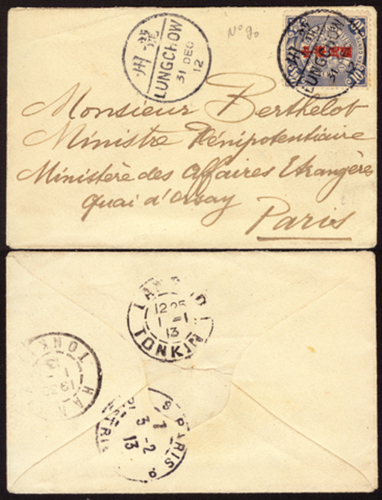 龍州
LUNGCHOW
31 DEC
12
No 90
LUNGCHOW
31
10
Monsieur Berthelot
Ministre Plénipotentiaire
Ministère des Affaires Etrangères
Quai d'Orsay
Paris
12 25
1 - 1
13
TONKIN
HAN
TONKIN
PARIS
3 - 2
13